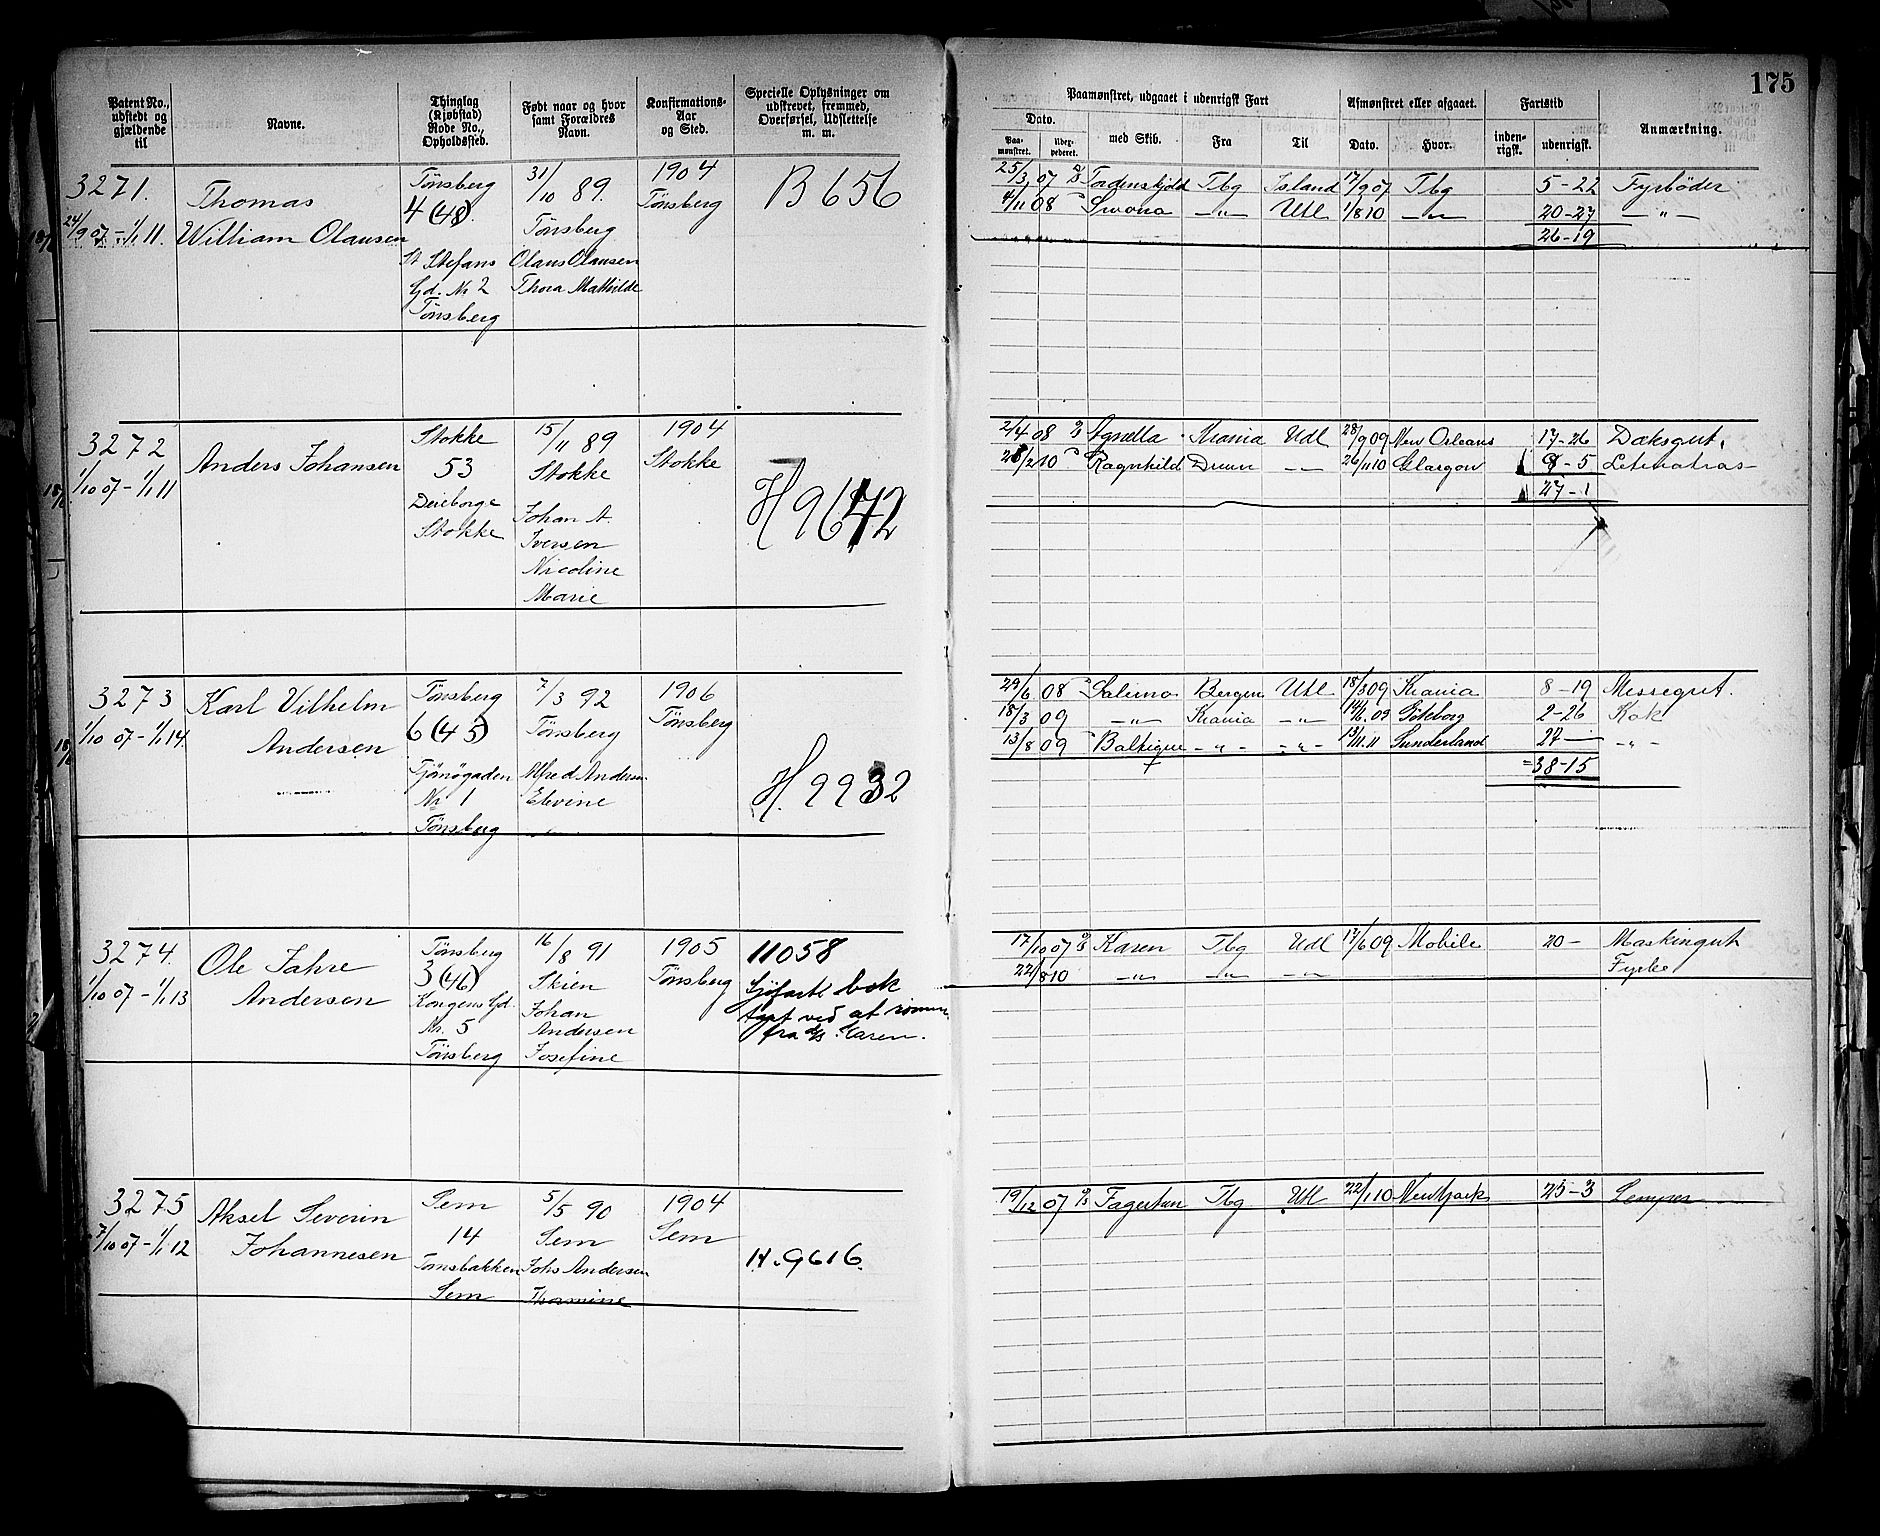 175
Patent No., udstedt og gjældende til
Navne.
Thinglag (Kjøbstad) Rode No., Opholdssted.
Født naar og hvor samt Forældres Navn.
Konfirmations-Aar og Sted.
Specielle Oplysninger om udskrevet, fremmed, Overførsel, Udslettelse m. m.
Paamønstret, udgaaet i udenrigsk Fart
Dato.
Paa-mønstret.
med Skib.
Fra
Til
Afmønstret eller afgaaet.
Dato.
Hvor.
Fartstid
inden-rigsk.
udenrigsk.
Anmærkning.
3271.
24/9 07 - 1/1 11.
Thomas
William Olausen
Tönsberg
4 (48).
St Stefans
Gd. Nr 2
Tönsberg
31/10 89.
Tönsberg
Olaus Olausen
Thora Mathilde
1904
Tönsberg
B 656
25/3 07 Tordenskjold Tbg Island 17/9 07 Tbg 5-22 Fyrböder
4/11 08 — " — Utl 1/8 10 — " — 20-27 — " —
26-19
3272
1/10 07 - 1/1 11
Anders Johansen
Stokke
53
Stokke
15/11 89
Stokke
Johan A.
Iversen
Nicoline
Marie
1904
Stokke
H 9642
2/4 08 Krania Utl 28/9 09 New Orleans 17-26 Dæksgut.
28/2 10 Ragnhild Drmn — 26/11 10 Glasgow 8-5 Letmatros
27-1
3273
1/10 07 - 1/1 14.
Karl Vilhelm
Andersen
Tönsberg
6 (45)
Tjömögaden
Nr 1
Tönsberg
7/3 92
Tönsberg
Alfred Andersen
Elevine
1906
Tönsberg
H. 9932
29/6 08 Salerno Bergen Utl 18/3 09 Krania 8-19 Messegut.
18/3 09 — " — Krania — " — 14/6 09 Göteborg 2-26 Kok
13/8 09 — " — — " — 13/11 11 Sunderland 27 — — " —
38-15
3274.
1/10 07 - 1/1 13
Ole Jahre
Andersen
Tönsberg
3 (46)
Kongens Gd.
Nr. 5
Tönsberg
16/8 91
Skien
Johan
Andersen
Josefine
1905
Tönsberg
11058
Sjöfarts bok
tapt ved at römme
fra d/s Karen.
17/10 07 d/s Karen Tbg Utl 17/6 09 Mobile 20 - Maskingut
22/8 10 — " — — " — — " — Fyrbö
3275
7/10 07 - 1/1 12
Aksel Severin
Johannesen
Sem
14
Tönsbakken
Sem
5/5 90
Sem
Johs Andersen
Thorvine
1904
Sem
H. 9616.
19/12 07 d/s Fagertun Tbg Utl 22/1 10 New York 25-3 Lemper